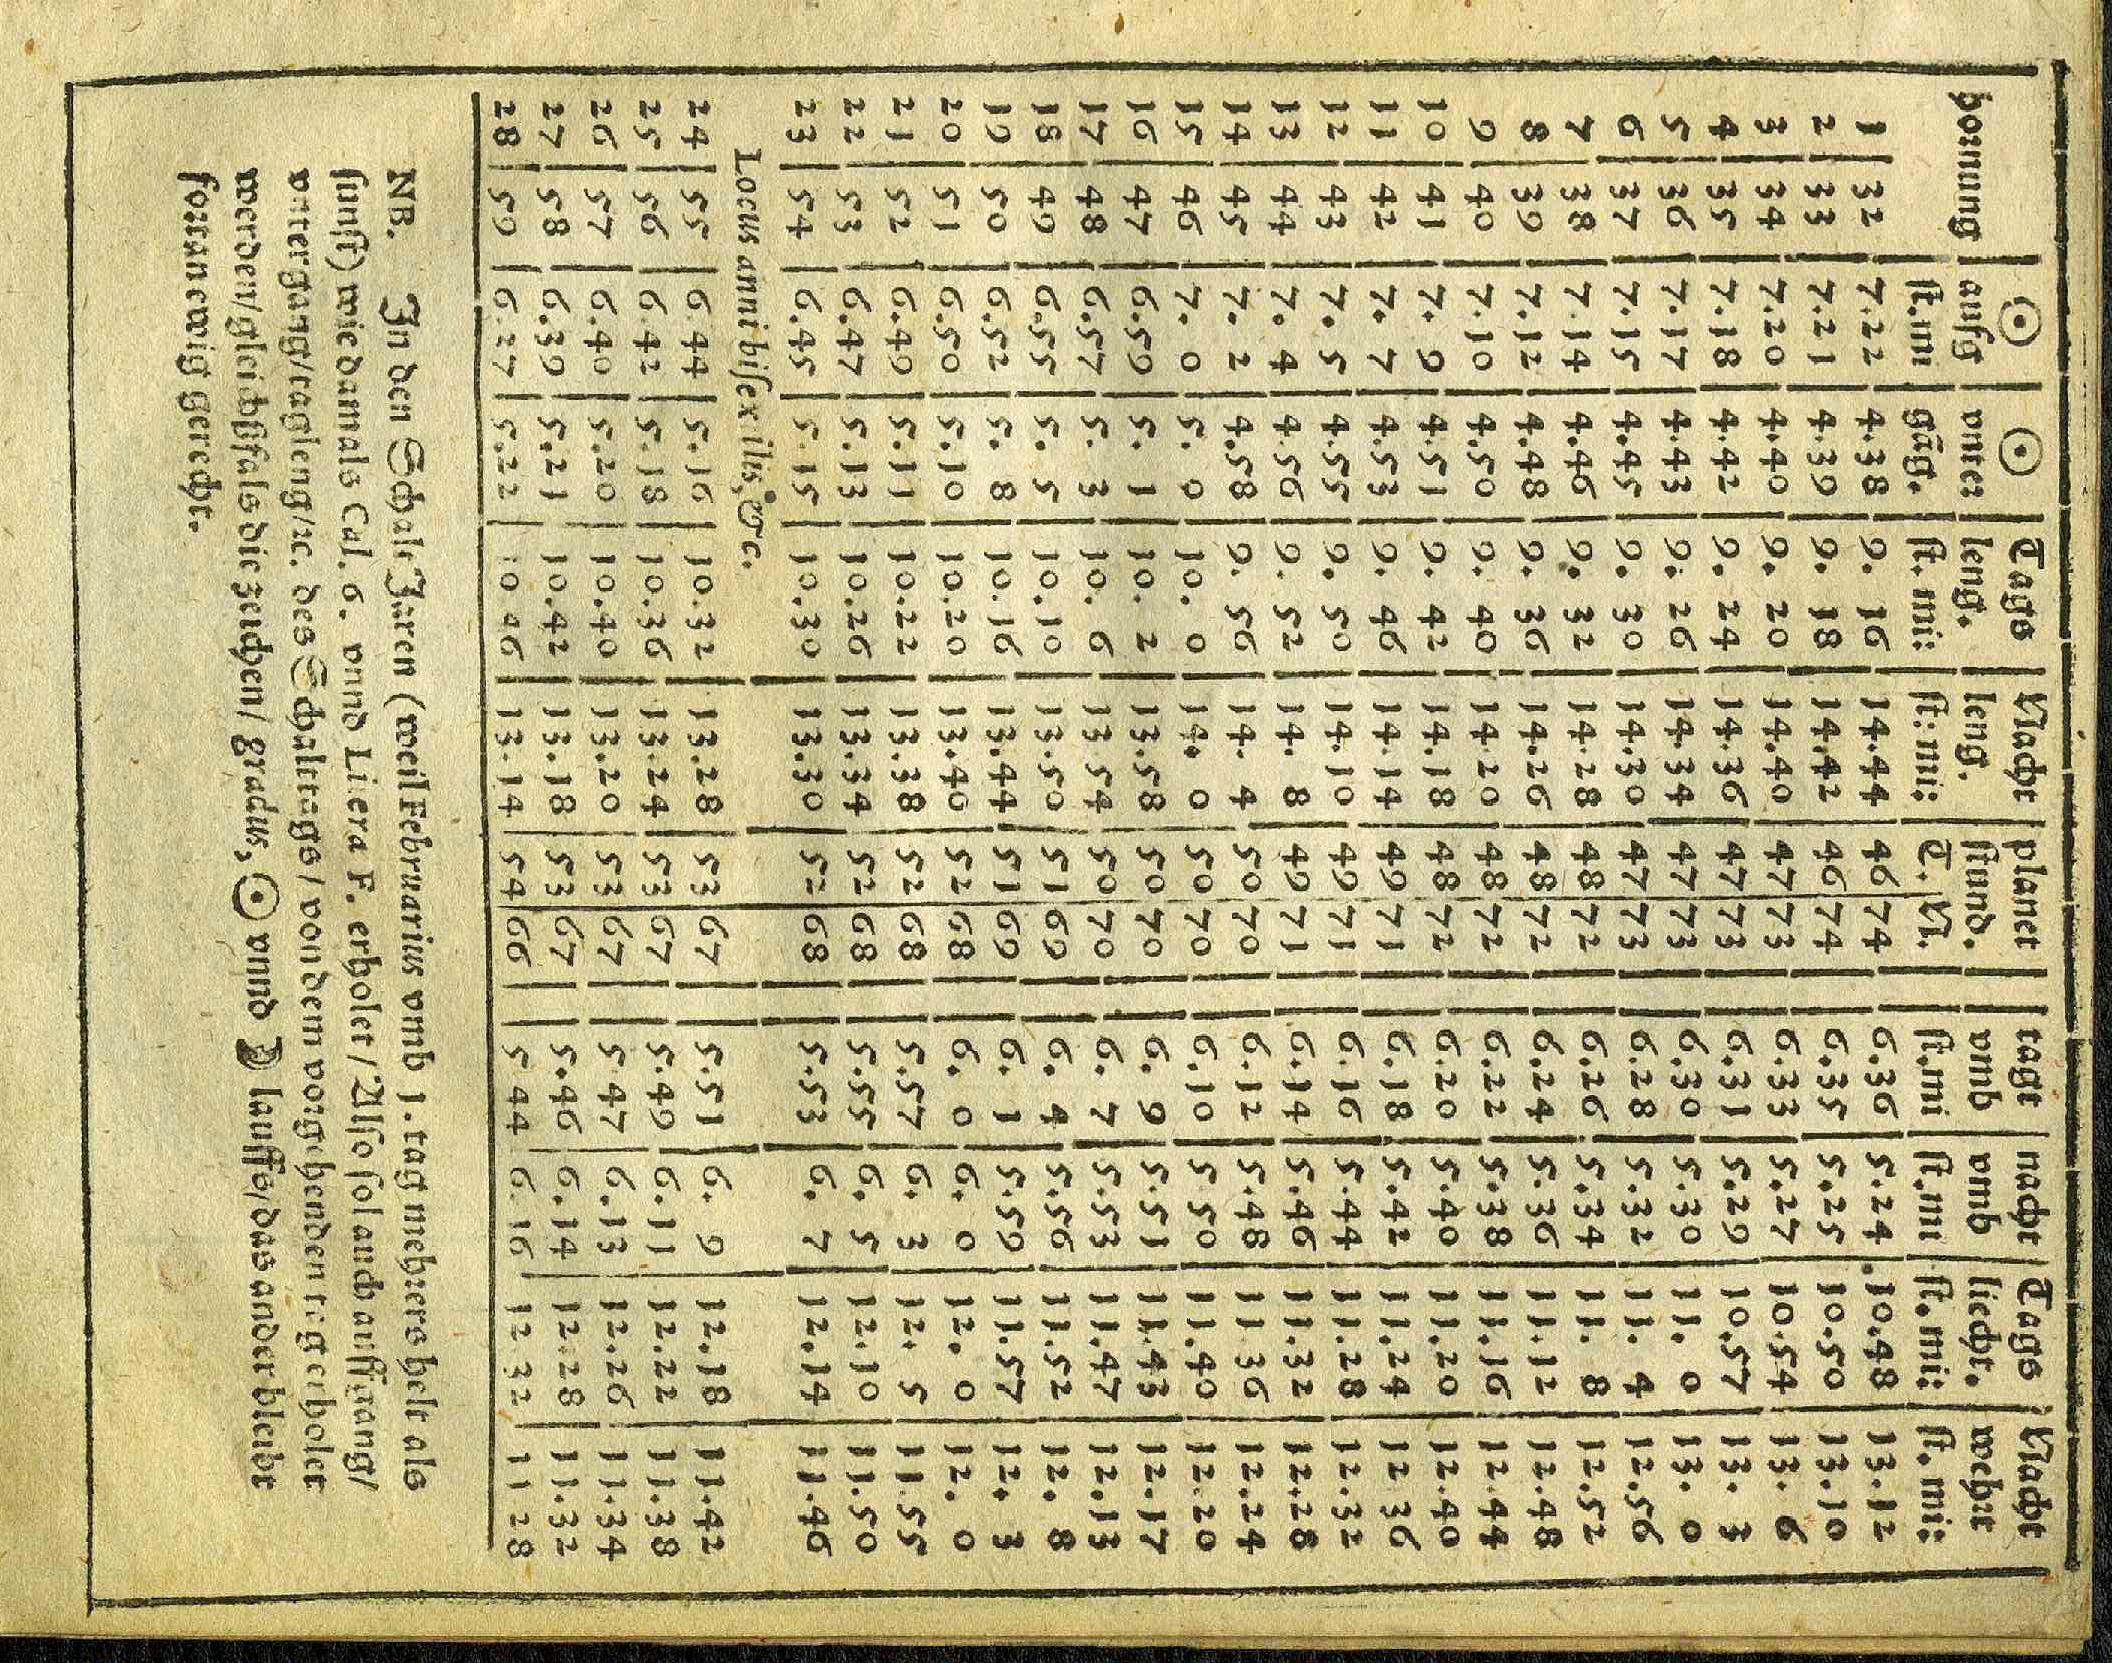 hornung | ☉ | ☉ | Tags | Nacht | planet | tagt | nacht | Tags | Nacht
aufg | vnter | leng. | leng. | stund. | vmb | vmb | liecht. | wehrt
st.mi | gãg. | st. mi: | st: mi: | T. N. | st.mi | st.mi | st. mi: | st. mi:
1 | 32 | 7.22 | 4.38 | 9. 16 | 14.44 | 46 | 74 | 6.36 | 5.24 | 10.48 | 13.12
2 | 33 | 7.21 | 4.39 | 9. 18 | 14.42 | 46 | 74 | 6.35 | 5.25 | 10.50 | 13.10
3 | 34 | 7.20 | 4.40 | 9. 20 | 14.40 | 47 | 73 | 6.33 | 5.27 | 10.54 | 13. 6
4 | 35 | 7.18 | 4.42 | 9. 24 | 14.36 | 47 | 73 | 6.31 | 5.29 | 10.57 | 13. 3
5 | 36 | 7.17 | 4.43 | 9. 26 | 14.34 | 47 | 73 | 6.30 | 5.30 | 11. 0 | 13. 0
6 | 37 | 7.15 | 4.45 | 9. 30 | 14.30 | 47 | 73 | 6.28 | 5.32 | 11. 4 | 12.56
7 | 38 | 7.14 | 4.46 | 9. 32 | 14.28 | 48 | 72 | 6.26 | 5.34 | 11. 8 | 12.52
8 | 39 | 7.12 | 4.48 | 9. 36 | 14.26 | 48 | 72 | 6.24 | 5.36 | 11.12 | 12.48
9 | 40 | 7.10 | 4.50 | 9. 40 | 14.20 | 48 | 72 | 6.22 | 5.38 | 11.16 | 12.44
10 | 41 | 7. 9 | 4.51 | 9. 42 | 14.18 | 48 | 72 | 6.20 | 5.40 | 11.20 | 12.40
11 | 42 | 7. 7 | 4.53 | 9. 46 | 14.14 | 49 | 71 | 6.18 | 5.42 | 11.24 | 12 36
12 | 43 | 7. 5 | 4.55 | 9. 50 | 14.10 | 49 | 71 | 6.16 | 5.44 | 11.28 | 12.32
13 | 44 | 7. 4 | 4.56 | 9. 52 | 14. 8 | 49 | 71 | 6.14 | 5.46 | 11.32 | 12.28
14 | 45 | 7. 2 | 4.58 | 9. 56 | 14. 4 | 50 | 70 | 6.12 | 5.48 | 11 36 | 12.24
15 | 46 | 7. 0 | 5. 0 | 10. 0 | 14. 0 | 50 | 70 | 6.10 | 5 50 | 11.40 | 12.20
16 | 47 | 6.59 | 5. 1 | 10. 2 | 13.58 | 50 | 70 | 6. 9 | 5.51 | 11.43 | 12.17
17 | 48 | 6.57 | 5. 3 | 10. 6 | 13 54 | 50 | 70 | 6. 7 | 5.53 | 11.47 | 12.13
18 | 49 | 6.55 | 5. 5 | 10.10 | 13.50 | 51 | 69 | 6. 4 | 5.56 | 11.52 | 12. 8
19 | 50 | 6.52 | 5. 8 | 10.16 | 13.44 | 51 | 69 | 6. 1 | 5.59 | 11.57 | 12. 3
20 | 51 | 6.50 | 5.10 | 10.20 | 13.40 | 52 | 68 | 6. 0 | 6. 0 | 12. 0 | 12. 0
21 | 52 | 6.49 | 5.11 | 10.22 | 13.38 | 52 | 68 | 5.57 | 6. 3 | 12. 5 | 11.55
22 | 53 | 6.47 | 5.13 | 10.26 | 13.34 | 52 | 68 | 5.55 | 6. 5 | 12.10 | 11.50
23 | 54 | 6.45 | 5.15 | 10.30 | 13.30 | 52 | 68 | 5.53 | 6. 7 | 12.14 | 11.46
Locus anni bisextilis, &c.
24 | 55 | 6 44 | 5.16 | 10.32 | 13.28 | 53 | 67 | 5.51 | 6. 9 | 12.18 | 11.42
25 | 56 | 6 42 | 5.18 | 10.36 | 13.24 | 53 | 67 | 5.49 | 6.11 | 12.22 | 11.38
26 | 57 | 6.40 | 5.20 | 10.40 | 13.20 | 53 | 67 | 5 47 | 6.13 | 12.26 | 11.34
27 | 58 | 6.39 | 5.21 | 10.42 | 13.18 | 53 | 67 | 5.46 | 6.14 | 12.28 | 11.32
28 | 59 | 6 27 | 5.22 | 10 46 | 13.14 | 54 | 66 | 5 44 | 6 16 | 12 32 | 11 28
NB. In den Schalt Jaren (weil Februarius vmb 1. tag mehrers helt als
sunst) wie damals Cal. 6. vnnd Litera F. erholet/ Also sol auch auffgang/
vntergang/tagleng/ꝛc. des Schalttags/ von dem vorgehenden tag erholet
werden/gleichßfals die zeichen/ gradus, ☉ vnnd ☽ lauffs/das ander bleibt
fortan ewig gerecht.